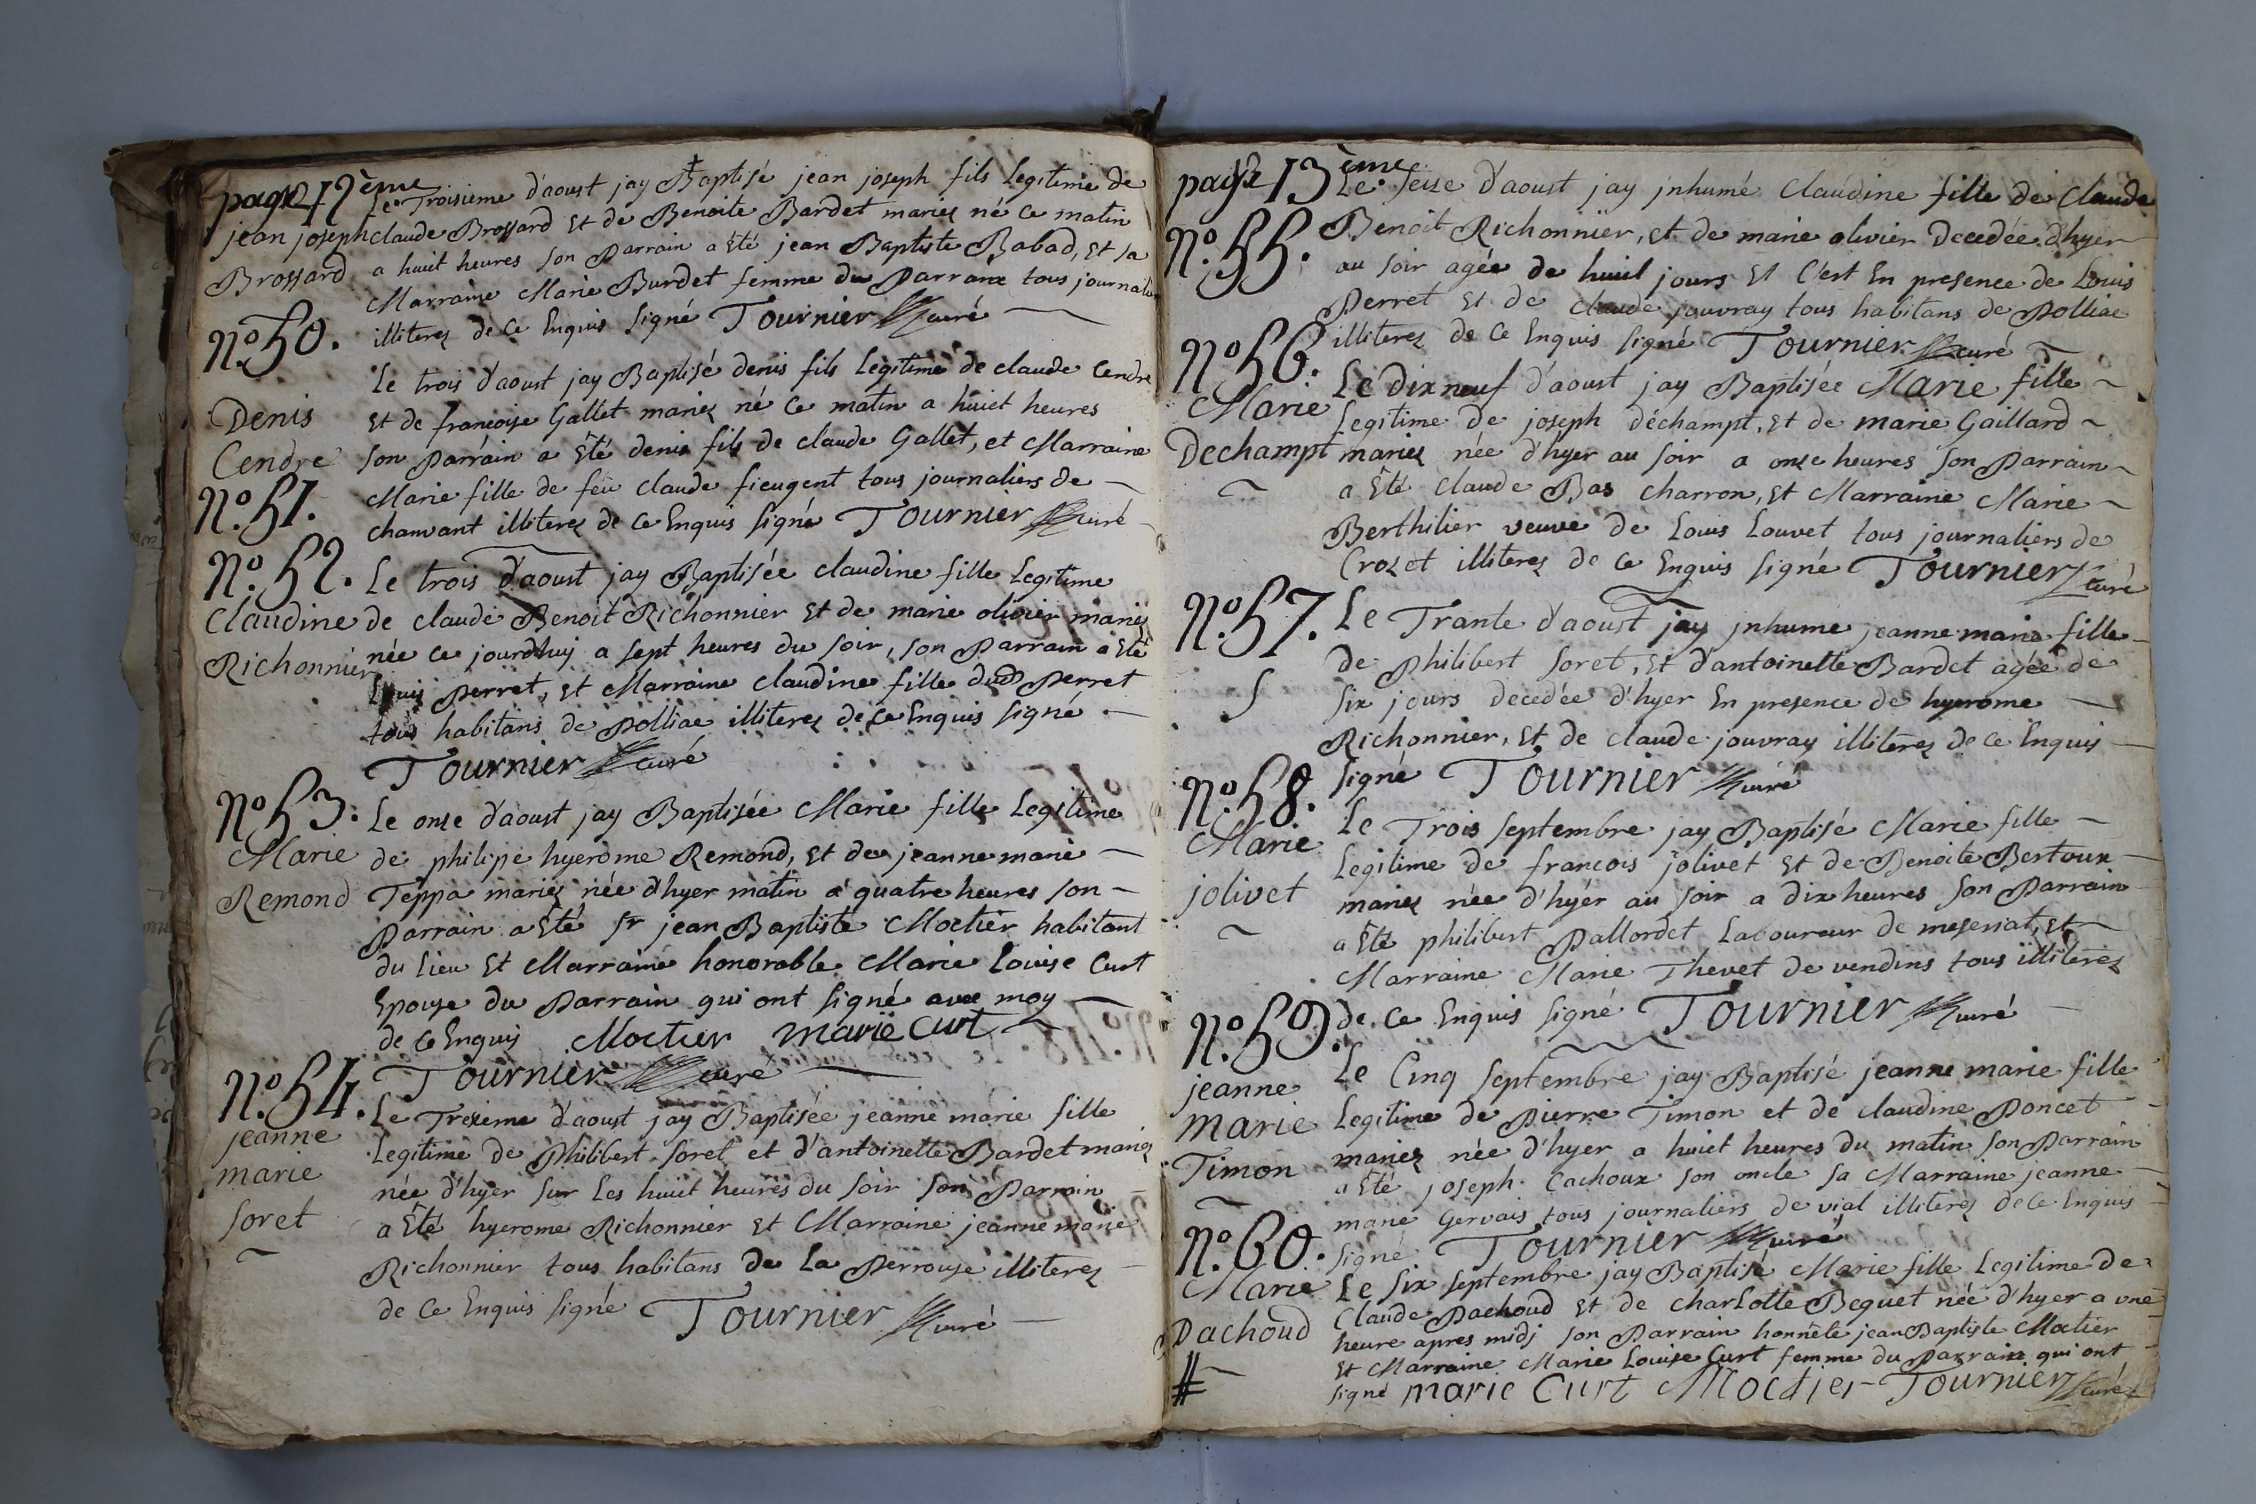 page 12ème
Le Troisieme d'aoust jay Baptisé jean joseph fils Legitime de
jean joseph
claude Brossard et de Benoite Bardet mariez né ce matin
Brossard
a huit heures son Parrain a été jean Baptiste Babad, et sa
Marraine Marie Burdet femme du Parrain tous journaliers
N.o 50.
illiterez de ce Enquis signé Tournier curé
Le trois d'aoust jay Baptisé denis fils Legitime de claude Cendre
Denis
et de françoise Gallet mariez né ce matin a huict heures
Cendre
son Parrain a été denis fils de claude Gallet, et Marraine
N.o 51.
Marie fille de feu claude fieugent tous journaliers de
chanvant illiterez de ce Enquis signé Tournier curé
N.o 52.
Le trois d'aoust jay Baptisée claudine fille Legitime
Claudine
de claude Benoit Richonnier et de marie olivier mariez
Richonnier
née ce jourdhuy a sept heures du soir, son Parrain a été
Louis Perret, et Marraine claudine fille dud Perret
tous habitans de Polliac illiterez de ce Enquis signé
Tournier curé
N.o 53.
Le onze d'aoust jay Baptisée Marie fille Legitime
Marie
de philipe hyerome Remond, et de jeanne marie
Remond
Teppa mariez née d'hyer matin a quatre heures son
Parrain a été sr jean Baptiste Moctier habitant
du Lieu et Marraine honorable Marie Louise Curt
Epouse du Parrain qui ont signé avec moy
de ce Enquis Moctier marie Curt
Tournier curé
N.o 54.
Le Trezieme d'aoust jay Baptisée jeanne marie fille
jeanne
Legitime de Philibert soret et d'antoinette Bardet mariez
marie
née d'hyer sur Les huict heures du soir son Parrain
soret
a été hyerome Richonnier et Marraine jeanne marie
Richonnier tous habitans de La Perrouse illiterez
de ce Enquis signé Tournier curé
page 13ème
Le seize d'aoust jay inhumé Claudine fille de Claude
N.o 55.
Benoit Richonnier, et de marie olivier decedée d'hyer
au soir agée de huit jours et C'est En presence de Louis
Perret et de claude jouvray tous habitans de Polliac
illiterez de ce Enquis signé Tournier curé
N.o 56.
Le dix neuf d'aoust jay Baptisée Marie fille
Marie
Legitime de joseph déchampt, et de marie Gaillard
Dechampt
mariez née d'hyer au soir a onze heures son Parrain
a été claude Bas charron, et Marraine Marie
Berthilier veuve de Louis Louvet tous journaliers de
Crozet illiterez de ce Enquis signé Tournier curé
N.o 57.
Le Trante d'aoust jay inhumé jeanne marie fille
de Philibert soret, et d'antoinette Bardet agée de
S
six jours decedée d'hyer En presence de hyerome
Richonnier, et de claude jouvray illiterez de ce Enquis
signé Tournier curé
N.o 58.
Le Trois septembre jay Baptisé Marie fille
Marie
Legitime de francois jolivet et de Benoite Bertoux
jolivet
mariez née d'hyer au soir a dix heures son Parrain
a été philibert Pallordet Laboureur de meseriat, et
Marraine Marie Thevet de vendins tous illiterez
de ce Enquis signé Tournier curé
N.o 59.
Le Cinq septembre jay Baptisé jeanne marie fille
jeanne
Legitime de Pierre Timon et de claudine Poncet
marie
mariez née d'hyer a huict heures du matin son Parrain
Timon
a été joseph Cachoux son oncle sa Marraine jeanne
marie Gervais tous journaliers de vial illiterez de ce Enquis
N.o 60.
signé Tournier curé
Marie
Le six septembre jay Baptisé Marie fille Legitime de
Claude Pachoud et de charlotte Bequet née d'hyer a une
Pachoud
heure apres midj son Parrain honnête jean Baptiste Moctier
et Marraine Marie Louise Curt femme du Parrain qui ont
signé marie Curt Moctier Tournier curé